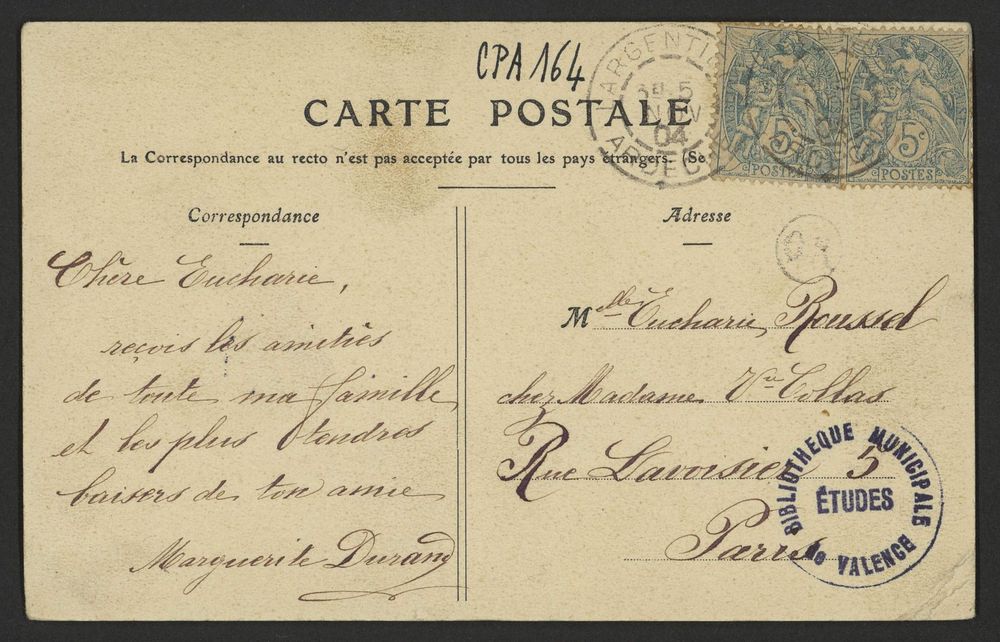 CPA 164
CARTE POSTALE
La Correspondance au recto n'est pas acceptée par tous les pays étrangers. (Se
LARGENTI
5
NOV
04
ARDEC
5c
POSTES
5c
POSTES
Correspondance
Chère Eucharie,
reçois les amitiés
de toute ma famille
et les plus tendres
baisers de ton amie
Marguerite Durand
Adresse
Mlle Eucharie Roussel
chez Madame Vve Collas
Rue Lavoisier 5
Paris
BIBLIOTHEQUE MUNICIPALE
ÉTUDES
de VALENCE